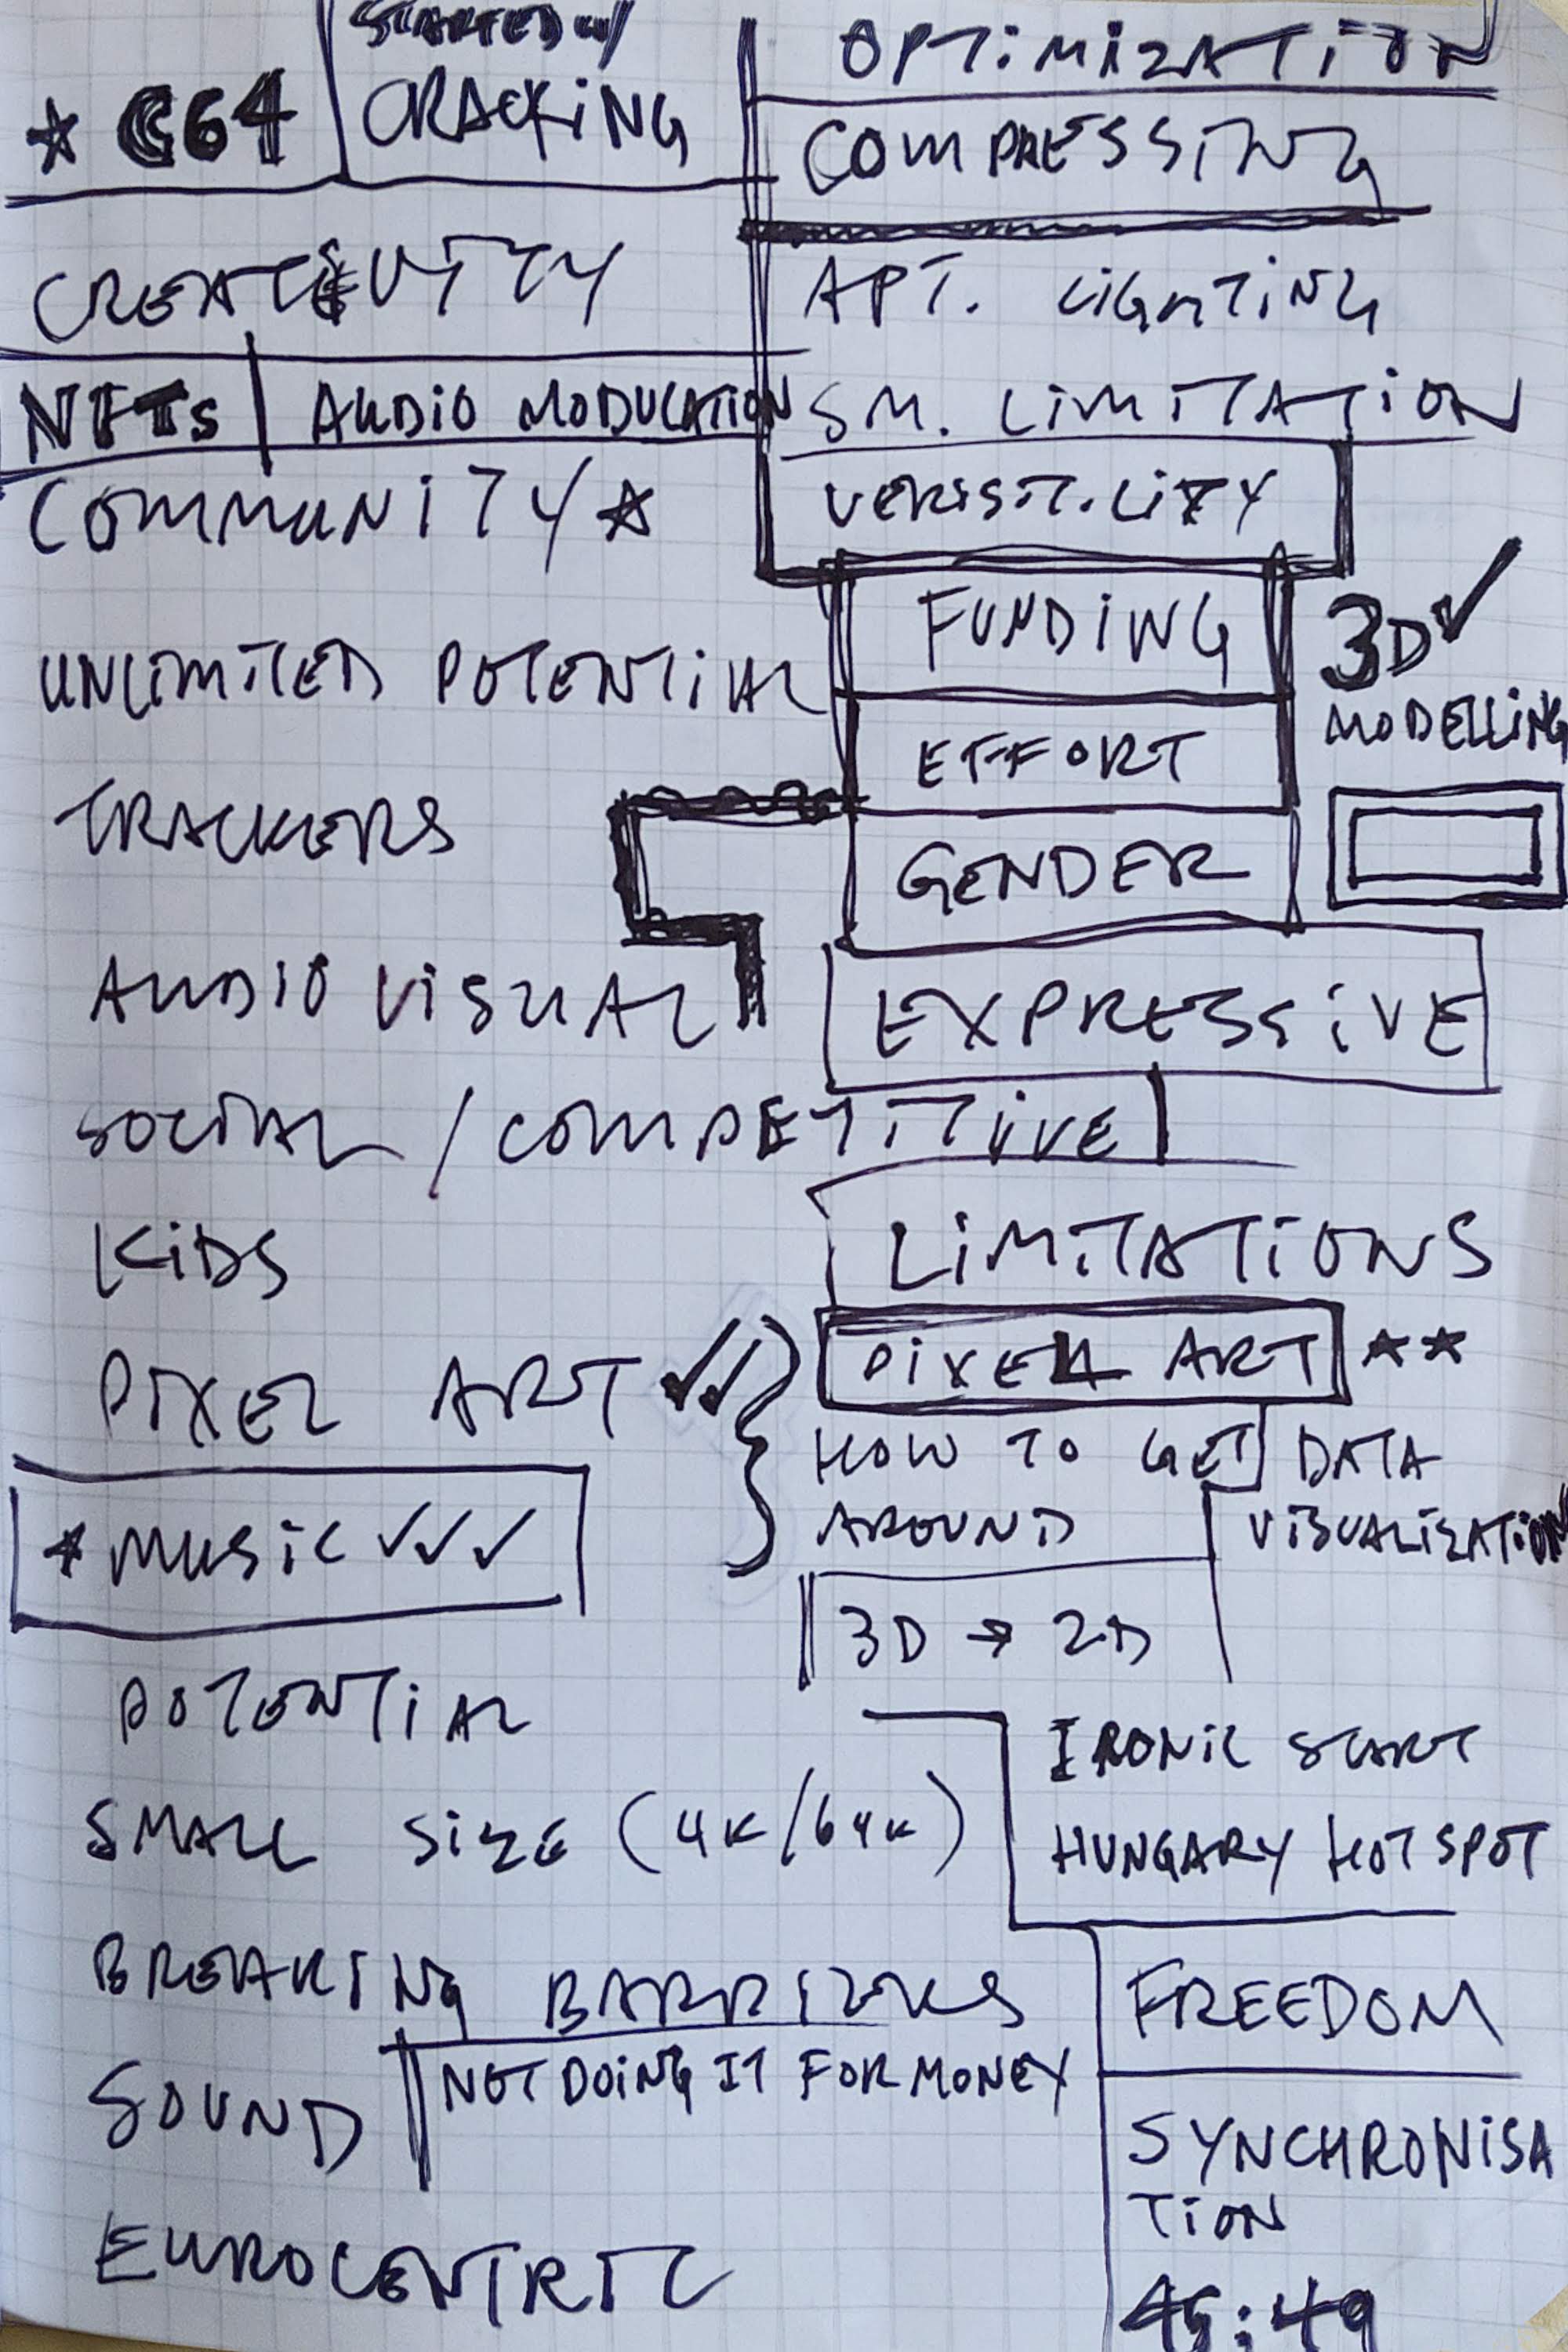 STARTED W/
★ C64
CRACKING
CREATIVITY
NFTs
AUDIO MODULATION
COMMUNITY ★
UNLIMITED POTENTIAL
TRACKERS
AUDIO VISUAL
SOCIAL / COMPETITIVE
KIDS
PIXEL ART ✓✓
★ MUSIC ✓✓✓
POTENTIAL
SMALL SIZE (4K/64K)
BREAKING BARRIERS
SOUND
NOT DOING IT FOR MONEY
EUROCENTRIC
OPTIMIZATION
COMPRESSING
APT. LIGHTING
SM. LIMITATION
VERISIT.LITY
FUNDING
3D ✓
MODELLING
EFFORT
GENDER
EXPRESSIVE
LIMITATIONS
PIXEL ART ★★
HOW TO GET
AROUND
DATA
VISUALISATION
3D → 2D
IRONIC START
HUNGARY HOTSPOT
FREEDOM
SYNCHRONISA
TION
45:49